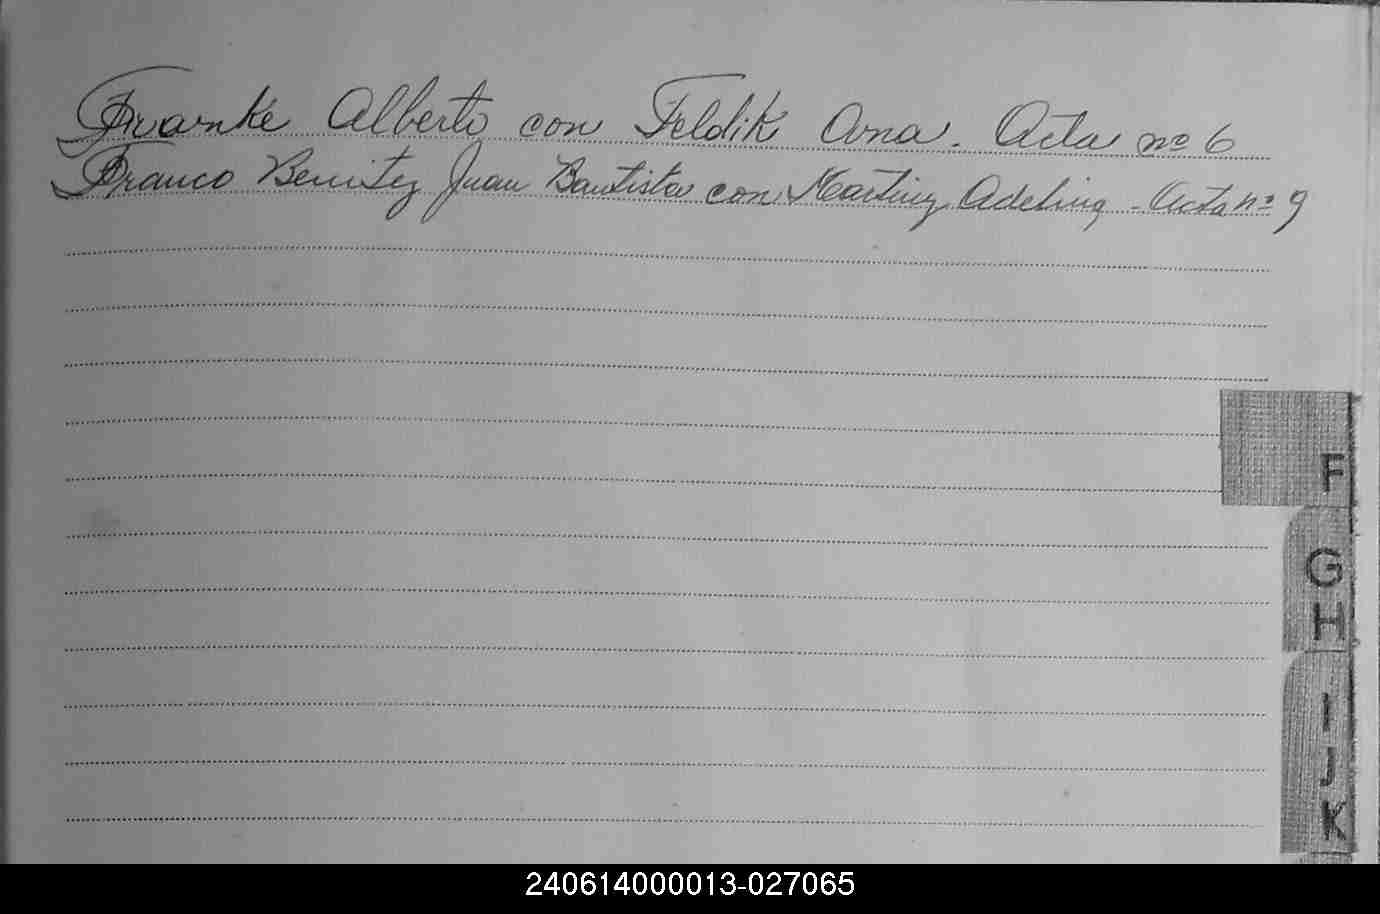 Franke Alberto con Feldik Ana. Acta no 6
Franco Benitez Juan Bautista con Martinez Adelina - Acta nº 9
F
G
H
I
J
K
240614000013-027065